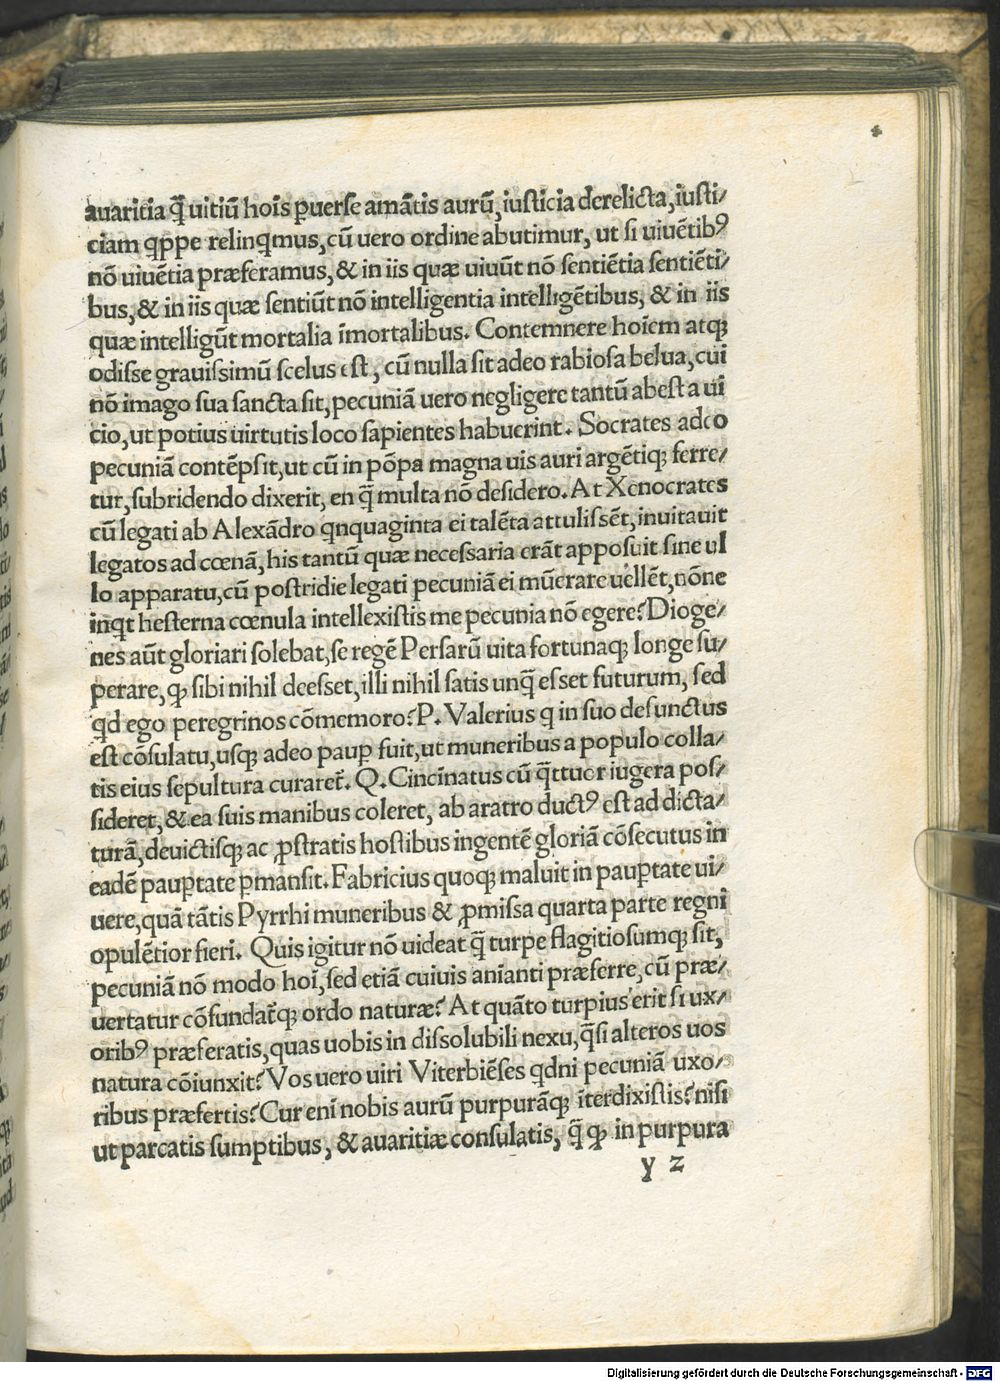 auaritia q̄ uitiū hoīs ꝑuerse amātis aurū, iusticia derelicta, iusti/
ciam qꝑpe relinqmus, cū uero ordine abutimur, ut si uiuētibꝰ
nō uiuētia præferamus, & in iis quæ uiuūt nō sentiētia sentiēti/
bus, & in iis quæ sentiūt nō intelligentia intelligētibus, & in iis
quæ intelligūt mortalia īmortalibus. Contemnere hoīem atqꝫ
odisse grauissimū scelus est, cū nulla sit adeo rabiosa belua, cui
nō imago sua sancta sit, pecuniā uero negligere tantū abest a ui
cio, ut potius uirtutis loco sapientes habuerint. Socrates adeo
pecuniā contēpsit, ut cū in pōpa magna uis auri argētiqꝫ ferre/
tur, subridendo dixerit, en q̄ multa nō desidero. At Xenocrates
cū legati ab Alexādro qnquaginta ei talēta attulissēt, inuitauit
legatos ad cœnā, his tantū quæ necessaria erāt apposuit sine ul
lo apparatu, cū postridie legati pecuniā ei mūerare uellēt, nōne
inqt hesterna cœnula intellexistis me pecunia nō egere? Dioge/
nes aūt gloriari solebat, se regē Persarū uita fortunaqꝫ longe su/
perare, qꝫ sibi nihil deesset, illi nihil satis unq̄ esset futurum, sed
qd ego peregrinos cōmemoro? P. Valerius q in suo defunctus
est cōsulatu, usqꝫ adeo pauꝑ fuit, ut muneribus a populo colla/
tis eius sepultura curaret̄. Q. Cincinatus cū q̄ttuor iugera pos/
sideret, & ea suis manibus coleret, ab aratro ductꝰ est ad dicta/
turā, deuictisqꝫ ac ꝓstratis hostibus ingentē gloriā cōsecutus in
eadē pauꝑtate ꝑmansit. Fabricius quoqꝫ maluit in pauꝑtate ui/
uere, quā tātis Pyrrhi muneribus & ꝓmissa quarta parte regni
opulētior fieri. Quis igitur nō uideat q̄ turpe flagitiosumqꝫ sit,
pecuniā nō modo hoī, sed etiā cuiuis anīanti præferre, cū præ/
uertatur cōfundat̄qꝫ ordo naturæ? At quāto turpius erit si ux/
oribꝰ præferatis, quas uobis in dissolubili nexu, q̄si alteros uos
natura cōiunxit? Vos uero uiri Viterbiēses qdni pecuniā uxo/
ribus præfertis? Cur enī nobis aurū purpurāqꝫ īterdixistis? nisi
ut parcatis sumptibus, & auaritiæ consulatis, q̄ qꝫ in purpura
y z
Digitalisierung gefördert durch die Deutsche Forschungsgemeinschaft - DFG